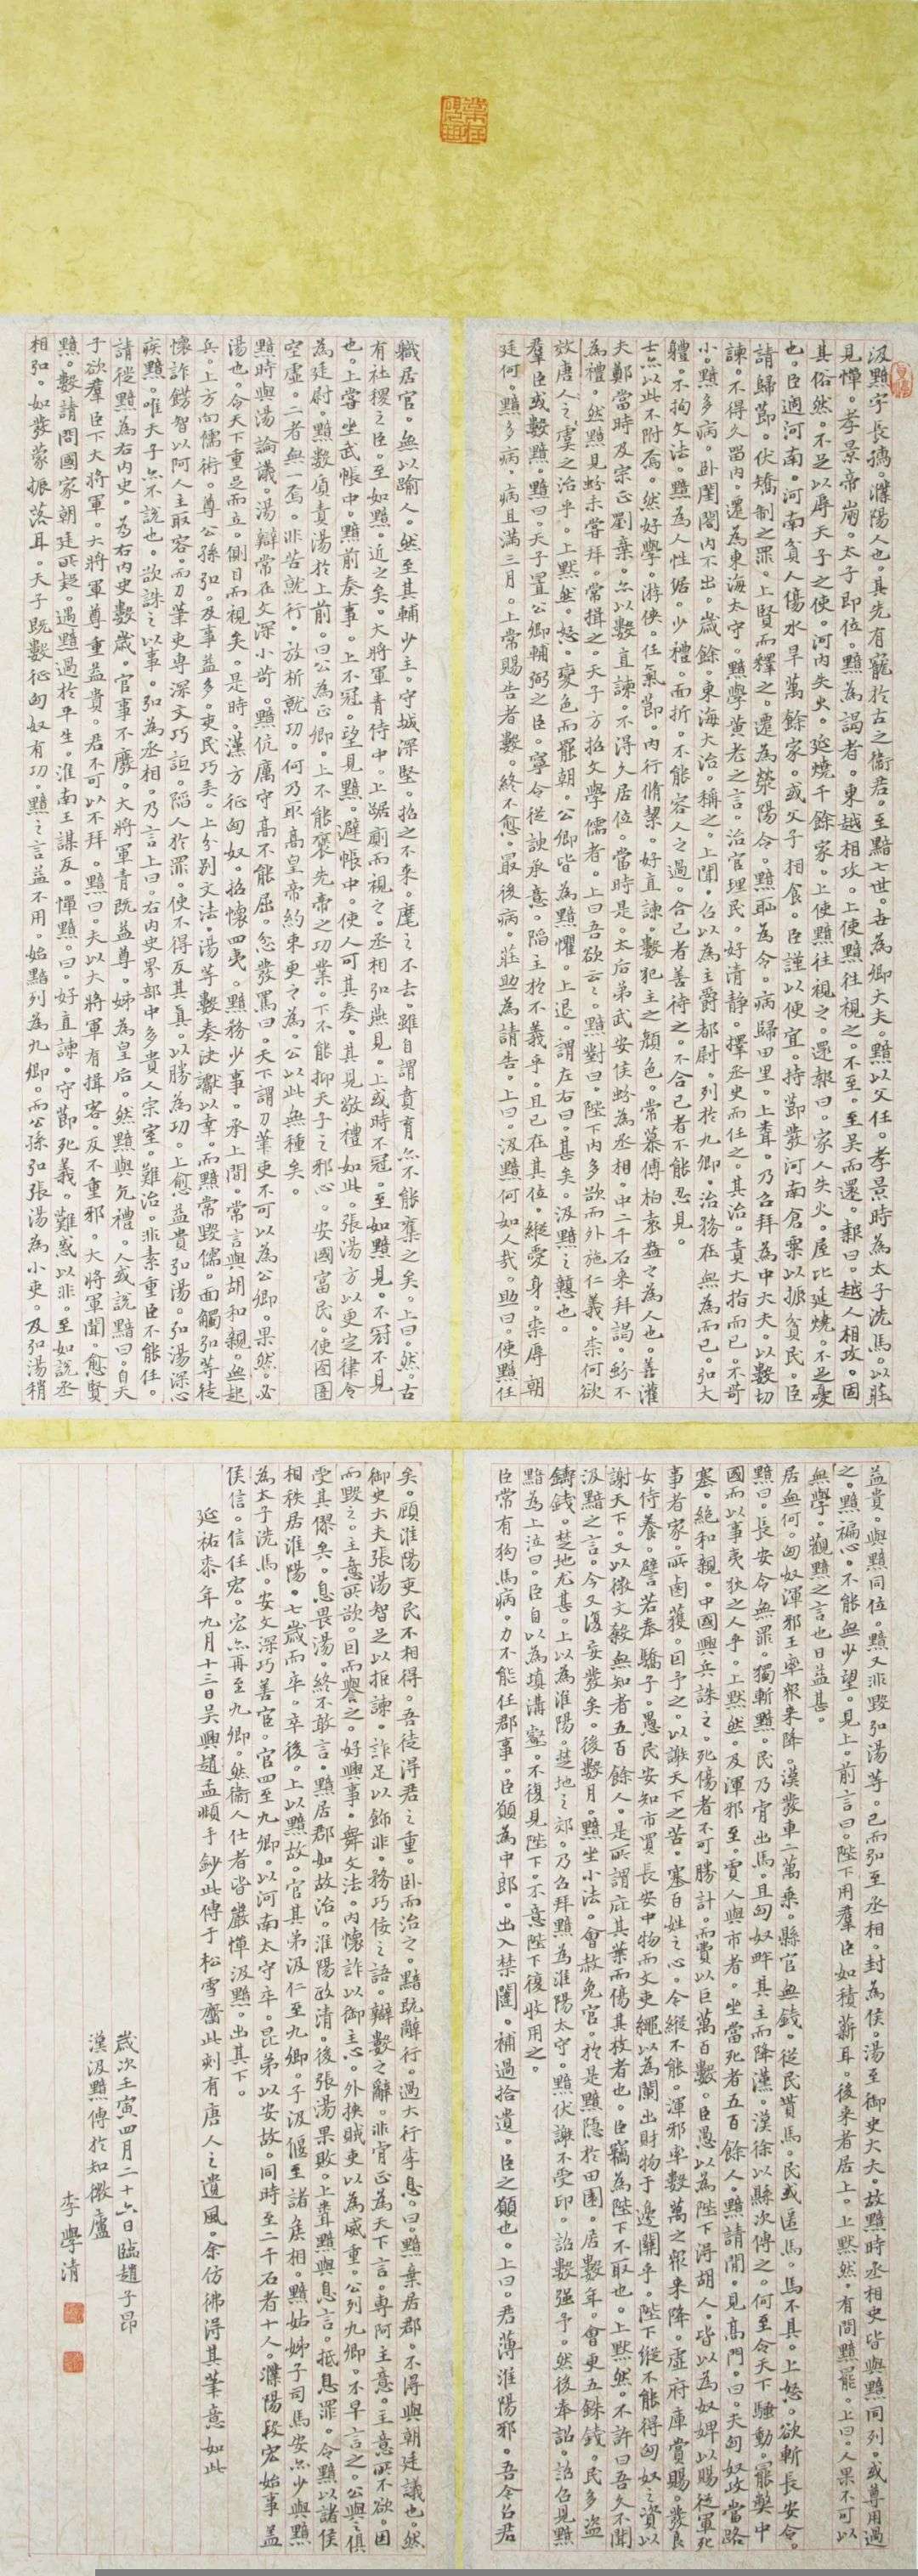 汲黯字長孺。濮陽人也。其先有寵於古之衛君。至黯七世。世為卿大夫。黯以父任。孝景時為太子洗馬。以莊
見憚。孝景帝崩。太子即位。黯為謁者。東越相攻。上使黯往視之。不至。至吳而還。報曰。越人相攻。固
其俗然。不足以辱天子之使。河內失火。延燒千餘家。上使黯往視之。還報曰。家人失火。屋比延燒。不足憂
也。臣過河南。河南貧人傷水旱萬餘家。或父子相食。臣謹以便宜。持節發河南倉粟以振貧民。臣
請歸節。伏矯制之罪。上賢而釋之。遷為滎陽令。黯恥為令。病歸田里。上聞。乃召拜為中大夫。以數切
諫。不得久留內。遷為東海太守。黯學黃老之言。治官理民。好清靜。擇丞史而任之。其治。責大指而已。不苛
小。黯多病。臥閨閤內不出。歲餘。東海大治。稱之。上聞。召以為主爵都尉。列於九卿。治務在無為而已。弘大
體。不拘文法。黯為人性倨。少禮。面折。不能容人之過。合己者善待之。不合己者不能忍見。
士亦以此不附焉。然好學。游俠。任氣節。內行脩絜。好直諫。數犯主之顏色。常慕傅柏袁盎之為人也。善灌
夫鄭當時及宗正劉棄。亦以數直諫。不得久居位。當時是。太后弟武安侯蚡為丞相。中二千石來拜謁。蚡不
為禮。然黯見蚡未嘗拜。常揖之。天子方招文學儒者。上曰吾欲云云。黯對曰。陛下內多欲而外施仁義。柰何欲
效唐人之虞之治乎。上默然。怒。變色而罷朝。公卿皆為黯懼。上退。謂左右曰。甚矣。汲黯之戇也。
羣臣或數黯。黯曰。天子置公卿輔弼之臣。寧令從諛承意。陷主於不義乎。且已在其位。縱愛身。柰辱朝
廷何。黯多病。病且滿三月。上常賜告者數。終不愈。最後病。莊助為請告。上曰。汲黯何如人哉。助曰。使黯任
職居官。無以踰人。然至其輔少主。守城深堅。招之不來。麾之不去。雖自謂賁育亦不能奪之矣。上曰。然。古
有社稷之臣。至如黯。近之矣。大將軍青侍中。上踞廁而視之。丞相弘燕見。上或時不冠。至如黯見。不冠不見
也。上嘗坐武帳中。黯前奏事。上不冠。望見黯。避帳中。使人可其奏。其見敬禮如此。張湯方以更定律令
為廷尉。黯數質責湯於上前。曰公為正卿。上不能褒先帝之功業。下不能抑天子之邪心。安國富民。使囹圄
空虛。二者無一焉。非苦就行。放析就功。何乃取高皇帝約束更之為。公以此無種矣。
黯時與湯論議。湯辯常在文深小苛。黯伉厲守高不能屈。忿發罵曰。天下謂刀筆吏不可以為公卿。果然。必
湯也。令天下重足而立。側目而視矣。是時。漢方征匈奴。招懷四夷。黯務少事。承上間。常言與胡和親。無起
兵。上方向儒術。尊公孫弘。及事益多。吏民巧矣。上分別文法。湯等數奏決讞以幸。而黯常毀儒。面觸弘等徒
懷詐飾智以阿人主取容。而刀筆吏專深文巧詆。陷人於罪。使不得反其真。以勝為功。上愈益貴弘湯。弘湯深心
疾黯。唯天子亦不說也。欲誅之以事。弘為丞相。乃言上曰。右內史界部中多貴人宗室。難治。非素重臣不能任。
請徙黯為右內史。為右內史數歲。官事不廢。大將軍青既益尊。姊為皇后。然黯與亢禮。人或說黯曰。自天
子欲羣臣下大將軍。大將軍尊重益貴。君不可以不拜。黯曰。夫以大將軍有揖客。反不重邪。大將軍聞。愈賢
黯。數請問國家朝廷所疑。遇黯過於平生。淮南王謀反。憚黯曰。好直諫。守節死義。難惑以非。至如說丞
相弘。如發蒙振落耳。天子既數征匈奴有功。黯之言益不用。始黯列為九卿。而公孫弘張湯為小吏。及弘湯稍
益貴。與黯同位。黯又非毀弘湯等。已而弘至丞相。封為侯。湯至御史大夫。故黯時丞相史皆與黯同列。或尊用過
之。黯褊心。不能無少望。見上。前言曰。陛下用羣臣如積薪耳。後來者居上。上默然。有間黯罷。上曰。人果不可以
無學。觀黯之言也日益甚。
居無何。匈奴渾邪王率眾來降。漢發車二萬乘。縣官無錢。從民貰馬。民或匿馬。馬不具。上怒。欲斬長安令。
黯曰。長安令無罪。獨斬黯。民乃肯出馬。且匈奴畔其主而降漢。漢徐以縣次傳之。何至令天下騷動。罷獘中
國而以事夷狄之人乎。上默然。及渾邪至。賈人與市者。坐當死者五百餘人。黯請間。見高門。曰。夫匈奴攻當路
塞。絕和親。中國興兵誅之。死傷者不可勝計。而費以巨萬百數。臣愚以為陛下得胡人。皆以為奴婢以賜從軍死
事者家。所鹵獲。因予之。以謝天下之苦。塞百姓之心。令縱不能。渾邪率數萬之眾來降。虛府庫賞賜。發良
女侍養。譬若奉驕子。愚民安知市買長安中物而文吏繩以為闌出財物于邊關乎。陛下縱不能得匈奴之資以
謝天下。又以微文殺無知者五百餘人。是所謂庇其葉而傷其枝者也。臣竊為陛下不取也。上默然。不許曰吾久不聞
汲黯之言。今又復妄發矣。後數月。黯坐小法。會赦免官。於是黯隱於田園。居數年。會更五銖錢。民多盜
鑄錢。楚地尤甚。上以為淮陽。楚地之郊。乃召拜黯為淮陽太守。黯伏謝不受印。詔數強予。然後奉詔。詔召見黯
黯為上泣曰。臣自以為填溝壑。不復見陛下。不意陛下復收用之。
臣常有狗馬病。力不能任郡事。臣願為中郎。出入禁闥。補過拾遺。臣之願也。上曰。君薄淮陽邪。吾今召君
矣。顧淮陽吏民不相得。吾徒得君之重。臥而治之。黯既辭行。過大行李息。曰。黯棄居郡。不得與朝廷議也。然
御史大夫張湯智足以拒諫。詐足以飾非。務巧佞之語。辯數之辭。非肯正為天下言。專阿主意。主意所不欲。因
而毀之。主意所欲。因而譽之。好興事。舞文法。內懷詐以御主心。外挾賊吏以為威重。公列九卿。不早言之。公與之俱
受其僇矣。息畏湯。終不敢言。黯居郡如故治。淮陽政清。後張湯果敗。上聞黯與息言。抵息罪。令黯以諸侯
相秩居淮陽。七歲而卒。卒後。上以黯故。官其弟汲仁至九卿。子汲偃至諸侯相。黯姑姊子司馬安亦少與黯
為太子洗馬。安文深巧善宦。官四至九卿。以河南太守卒。昆弟以安故。同時至二千石者十人。濮陽段宏始事蓋
侯信。信任宏。宏亦再至九卿。然衛人仕者皆嚴憚汲黯。出其下。
延祐柒年九月十三日吳興趙孟頫手鈔此傳于松雪齋此刻有唐人之遺風。余仿彿得其筆意如此
歲次壬寅四月二十六日臨趙子昂
漢汲黯傳於知微廬
李學清